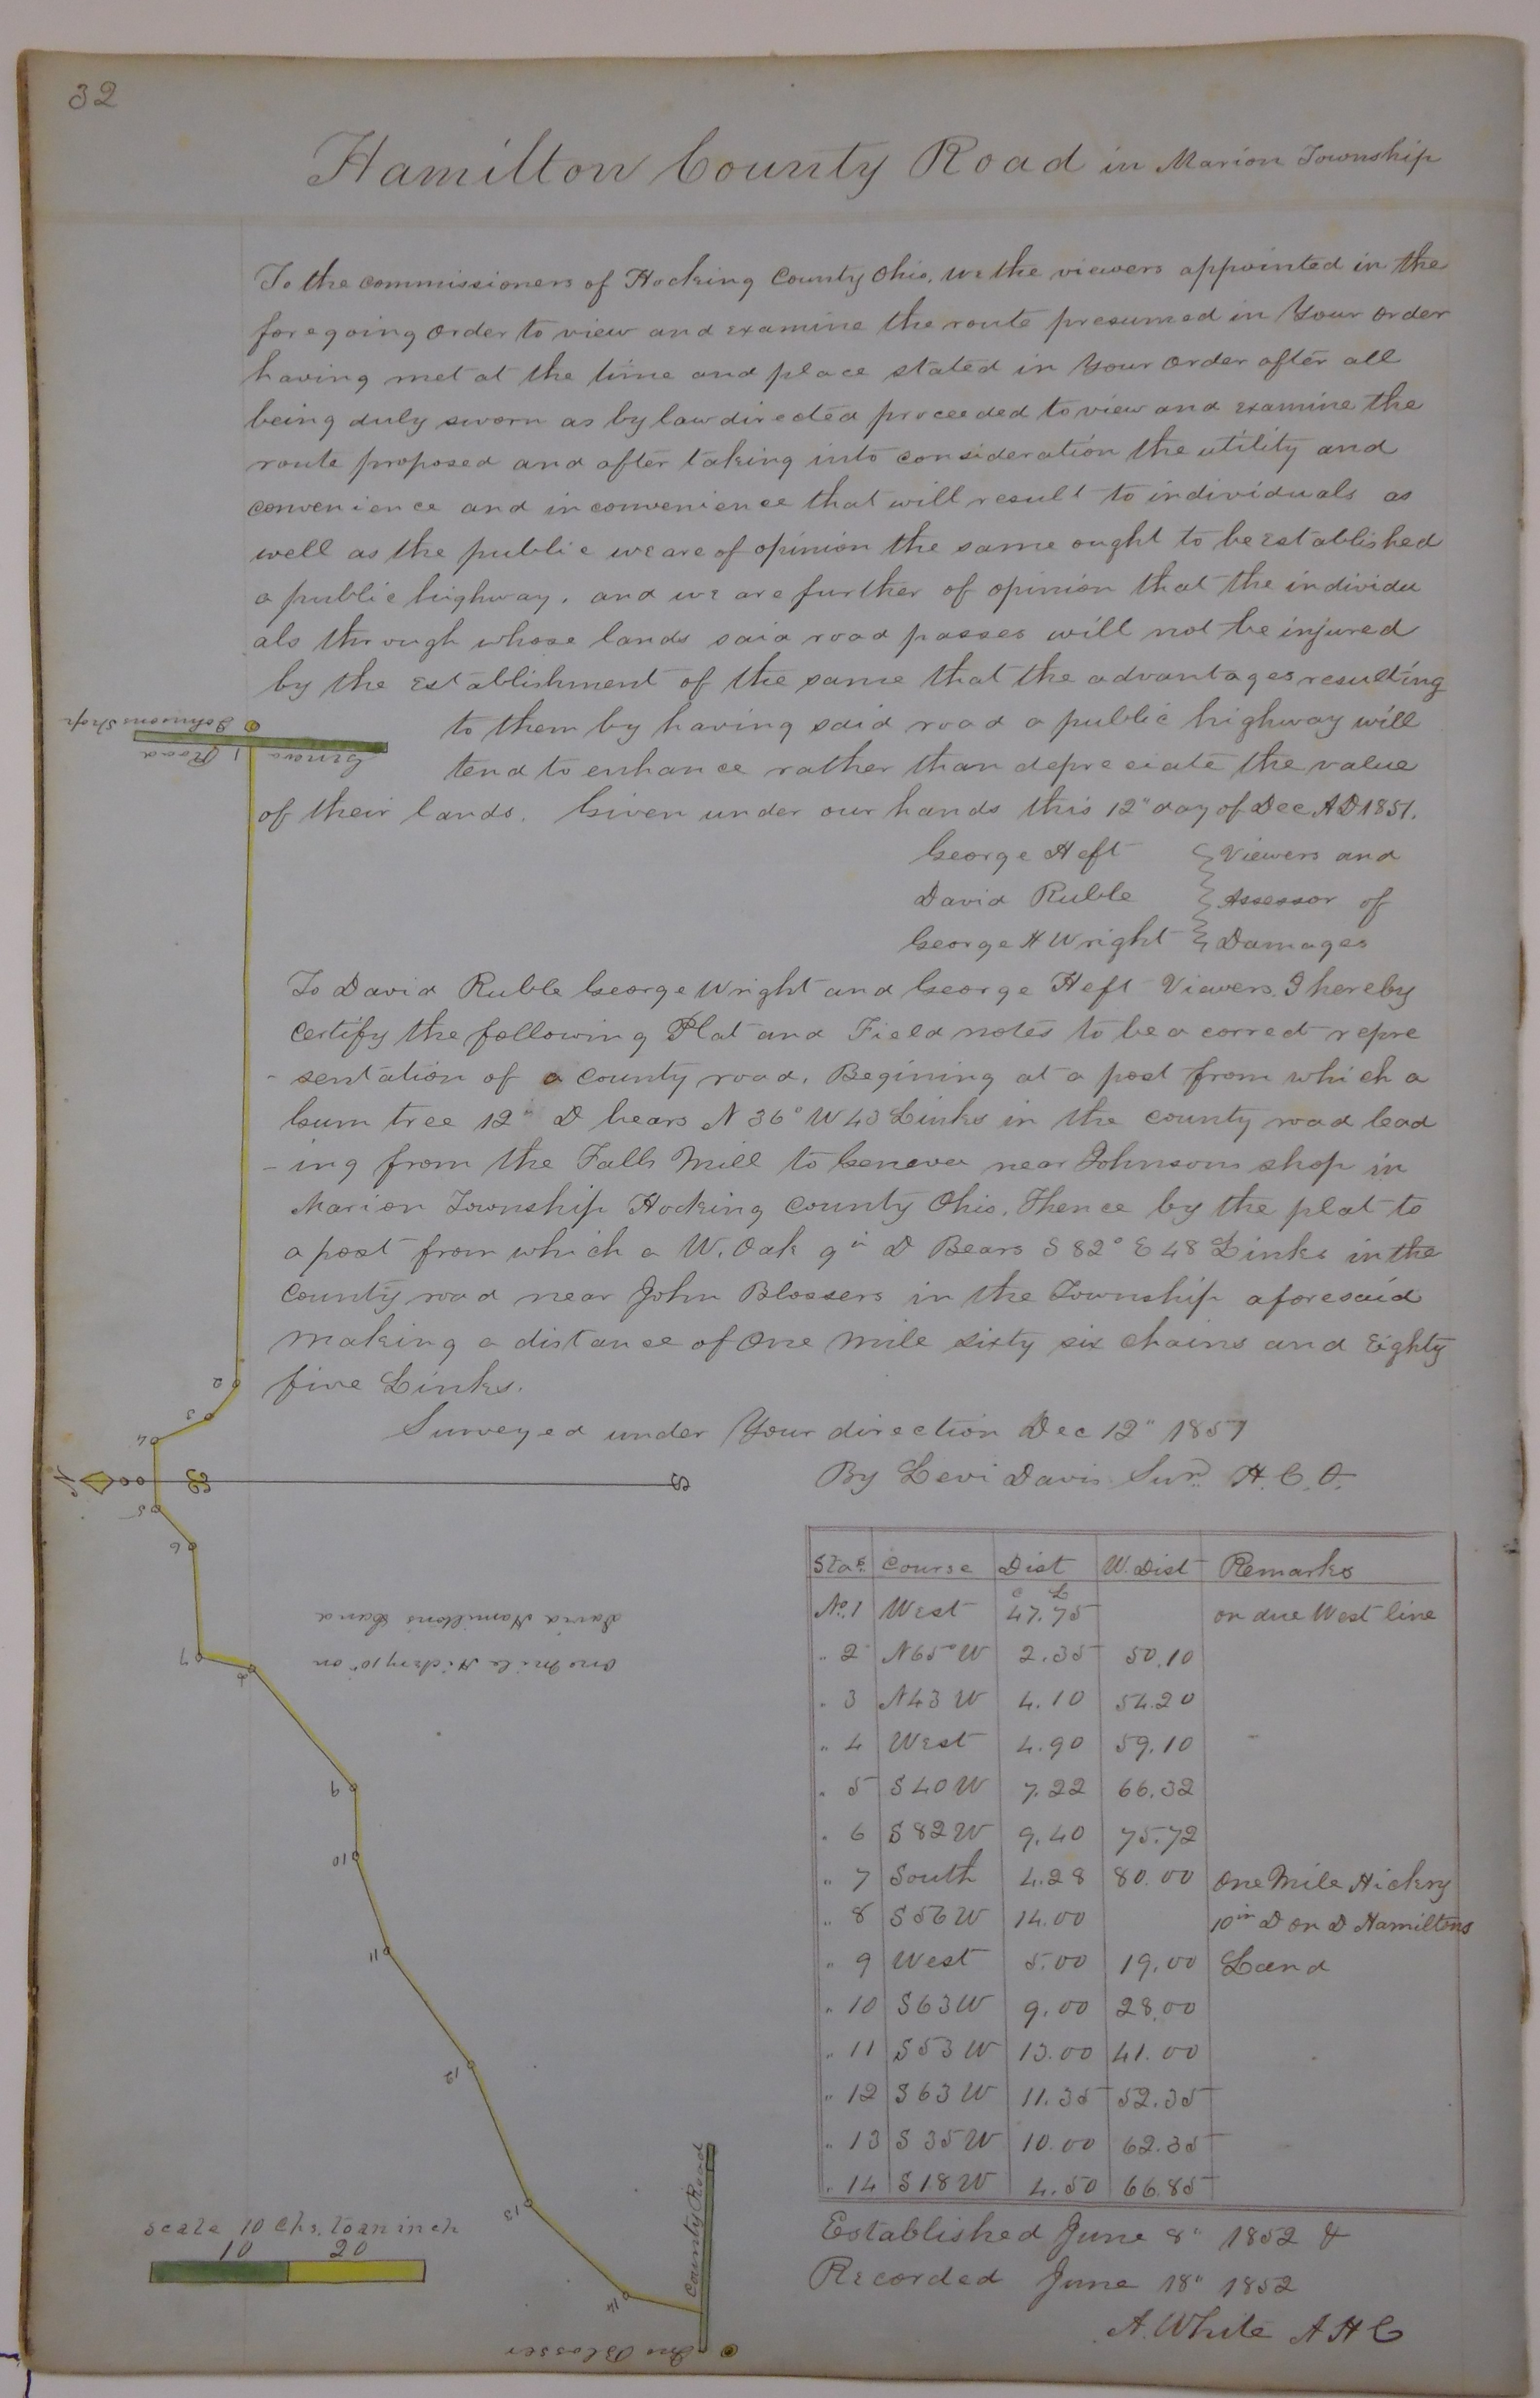 32
Hamilton County Road in Marion Township
To the commissioners of Hocking County Ohio. We the viewers appointed in the
foregoing order to view and examine the route presumed in Your order
having met at the time and place stated in Your order after all
being duly sworn as by law directed proceeded to view and examine the
route proposed and after taking into consideration the utility and
convenience and inconvenience that will result to individuals as
well as the public we are of opinion the same ought to be established
a public highway. and we are further of opinion that the individu
als through whose lands said road passes will not be injured
by the establishment of the same that the advantages resulting
to them by having said road a public highway will
tend to enhance rather than depreciate the value
of their lands. Given under our hands this 12" day of Dec AD 1851.
George Heft } Viewers and
David Ruble } Assessor of
George H Wright } Damages
To David Ruble George Wright and George Heft Viewers. I hereby
certify the following Plat and Field notes to be a correct repre
-sentation of a county road. Begining at a post from which a
Gum tree 12" D bears N 36° W 43 Links in the county road lead
-ing from the Falls Mill to Geneva near Johnsons shop in
Marion Township Hocking County Ohio. Thence by the plat to
a post from which a W. Oak 9in D Bears S 82° E 48 Links in the
County road near John Blossers in the Township aforesaid
making a distance of One mile sixty six chains and Eighty
five Links.
Surveyed under Your direction Dec 12" 1851
By Levi Davis Surr. H. C. O.
Johnsons Shop
Geneva Road
1
2
3
4
N
S
5
6
7
8
One Mile Hickery 10" on
David Hamiltons Land
9
10
11
12
13
14
County Road
Jno Blosser
Scale 10 Chs. to an inch
10 20
Stas. Course Dist W. Dist Remarks
C L
No. 1 West 47.75 on due West line
" 2 N65°W 2.35 50.10
" 3 N43W 4.10 54.20
" 4 West 4.90 59.10
" 5 S40W 7.22 66.32
" 6 S82W 9.40 75.72
" 7 South 4.28 80.00 One Mile Hickry
" 8 S56W 14.00 10in D on D Hamiltons
" 9 West 5.00 19.00 Land
" 10 S63W 9.00 28.00
" 11 S53W 13.00 41.00
" 12 S63W 11.35 52.35
" 13 S35W 10.00 62.35
" 14 S18W 4.50 66.85
Established June 8" 1852 &
Recorded June 18" 1852
A. White A H C